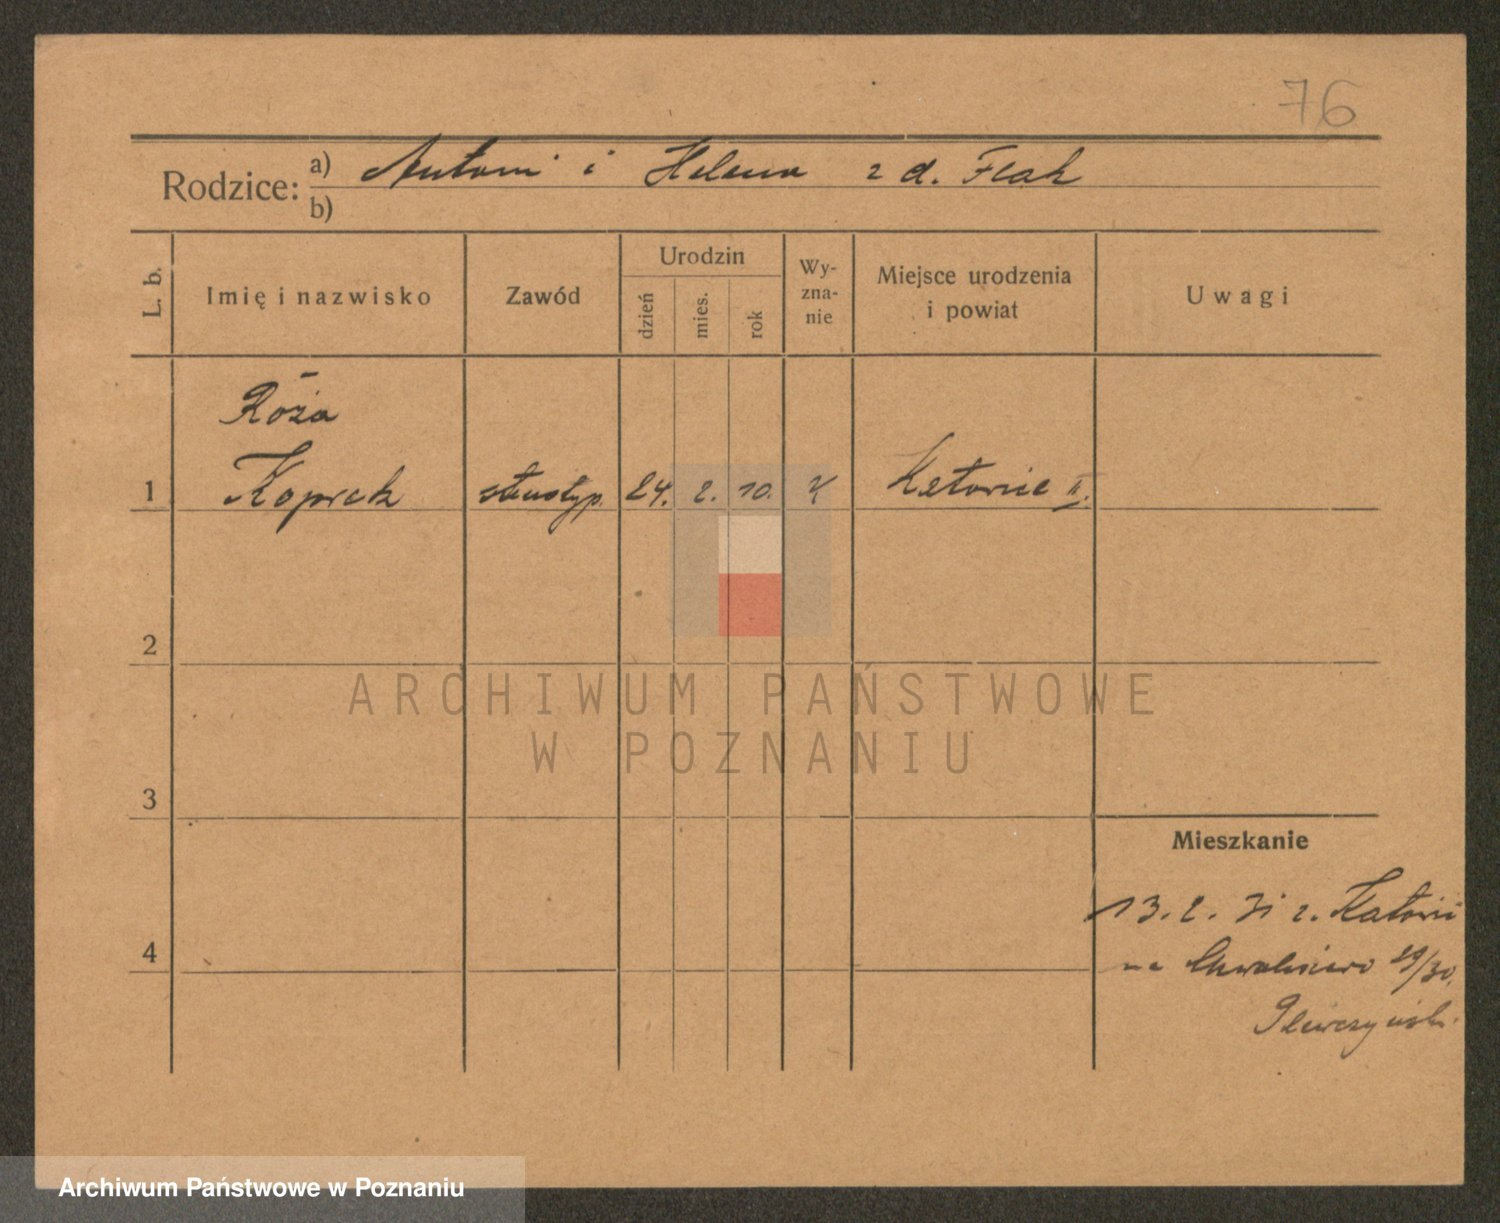 76
Rodzice: a) Antoni i Helena z d. Flak
b)
L. b.
Imię i nazwisko
Zawód
Urodzin
dzień
mies.
rok
Wy-
zna-
nie
Miejsce urodzenia
i powiat
Uwagi
Róża
1 Koprek 24. 2. 10. Katowice II.
2
ARCHIWUM PAŃSTWOWE
W POZNANIU
3
Mieszkanie
13. 2. 31 z. Katowic
4
na 29/30.
Archiwum Państwowe w Poznaniu